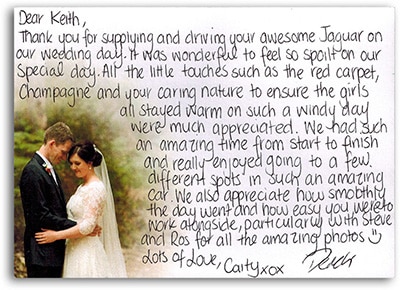 Dear Keith,
Thank you for supplying and driving your awesome Jaguar on
our wedding day. It was wonderful to feel so spoilt on our
special day. All the little touches such as the red carpet,
Champagne and your caring nature to ensure the girls
all stayed warm on such a windy day
were much appreciated. We had such
an amazing time from start to finish
and really enjoyed going to a few
different spots in such an amazing
car. We also appreciate how smoothly
the day went and how easy you were to
work alongside, particularly with Steve
and Ros for all the amazing photos ☺
Lots of Love, Caity xox